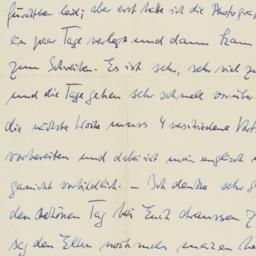 furchtbar leid; aber erst hatte ich die Photogra
ein paar Tage verlegt und dann kam
zum Schreiben. Es ist sehr, sehr viel z
und die Tage gehen sehr schnell vorüber
die nächste Woche muss 4 verschiedene
vorbereiten und dabei ist mein englisch
garnicht vorbildlich. – Ich denke sehr
den schönen Tag bei Euch draussen
sag den Eltern nochmals meinen